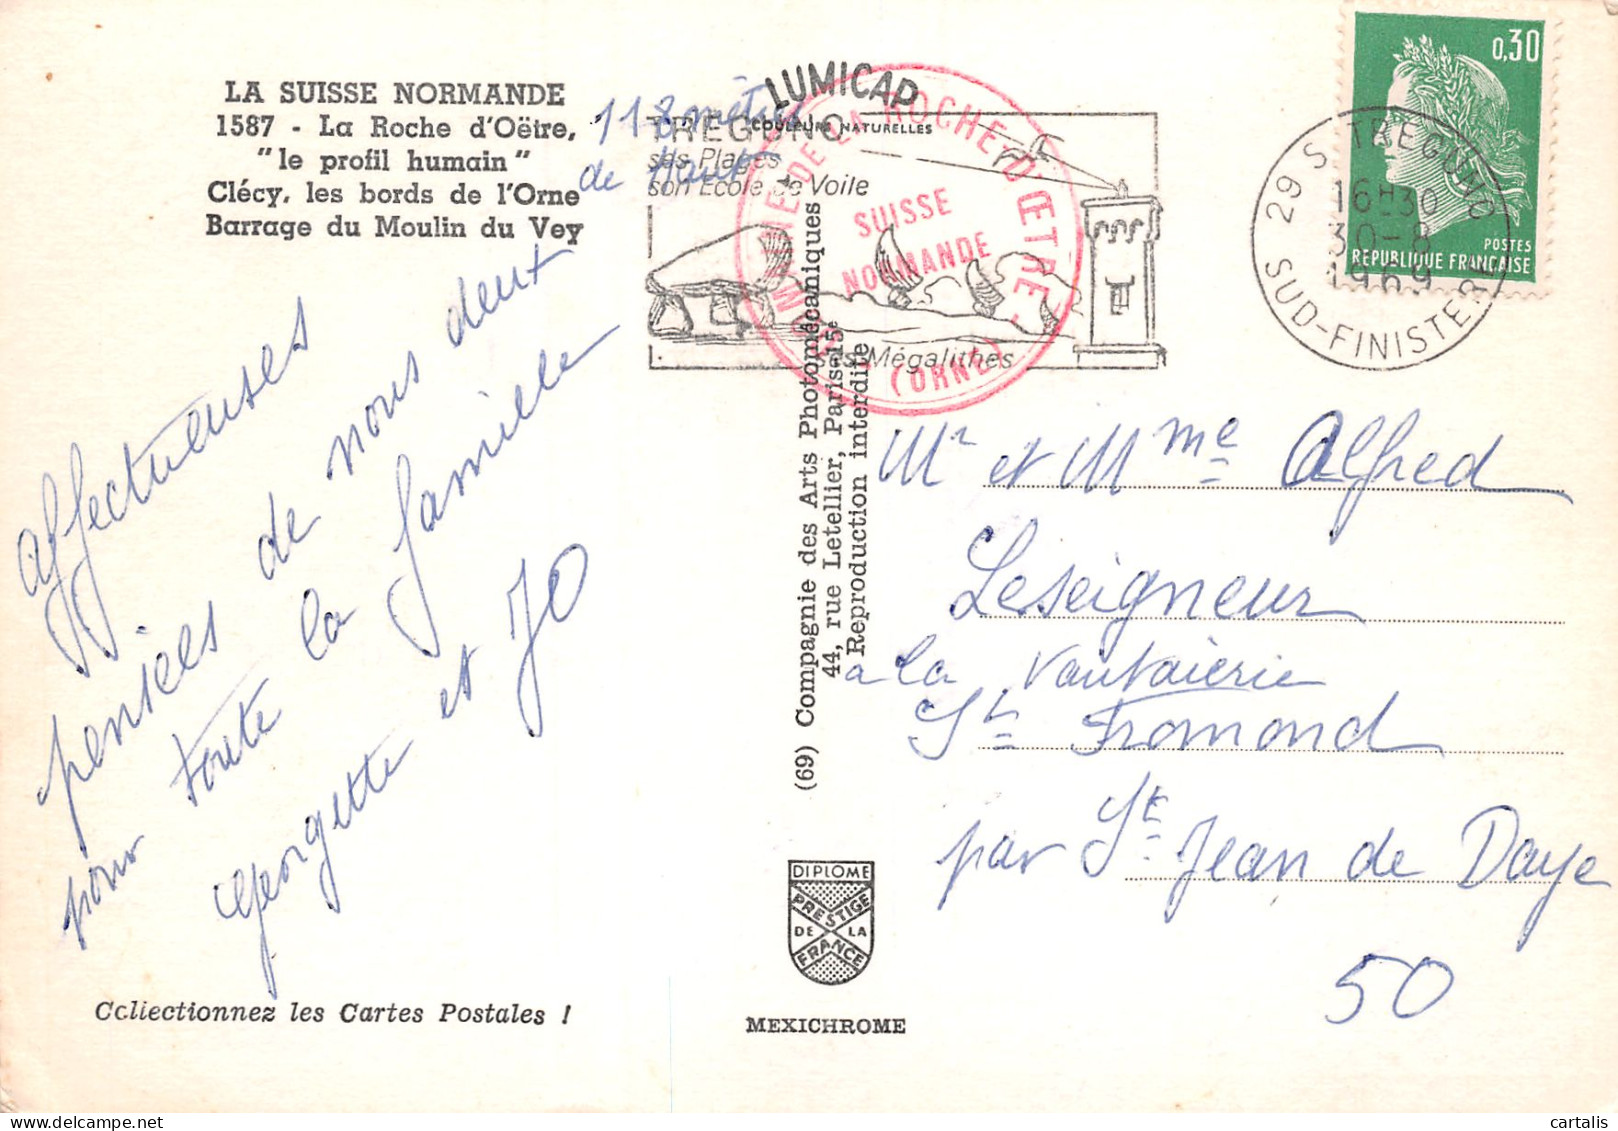 LA SUISSE NORMANDE
1587 - La Roche d'Oëtre,
"le profil humain"
Clécy, les bords de l'Orne
Barrage du Moulin du Vey
118 mètres
de Haut
LUMICAP
COULEURS NATURELLES
TREGUNC
ses Plages
son Ecole de Voile
ses Mégalithes
DE LA ROCHE D'ŒTRE
SUISSE
NORMANDE
(ORNE)
0,30
POSTES
REPUBLIQUE FRANÇAISE
29 S TREGUNC
16H30
30-8
1969
SUD-FINISTERE
affectueuses
pensées de nous deux
pour toute la famille
Georgette et JO
(69) Compagnie des Arts Photomécaniques
44, rue Letellier, Paris-15e
Reproduction interdite
Mr et Mme Alfred
Leseigneur
a la Vautaierie
St Fromond
par St Jean de Daye
50
DIPLOME
PRESTIGE
DE LA
FRANCE
MEXICHROME
Collectionnez les Cartes Postales !
© cartalis
delcampe.net